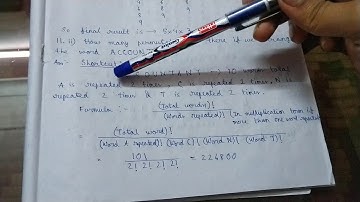 8
9
So final result is →
11. ii) How many permu there if we
the word ACCOUN
An:- Shortcut
A is repeated 2 times, C is repeated 2 times, N is
repeated 2 time & T is repeated 2 times.
Formula :- (Total words)!
(Words repeated)! (In multiplication form if
more than one word repeated
= (Total word)!
(Word A repeated)! (Word C)! (Word N)! (Word T)!
= 10!
2! 2! 2! 2! = 226800